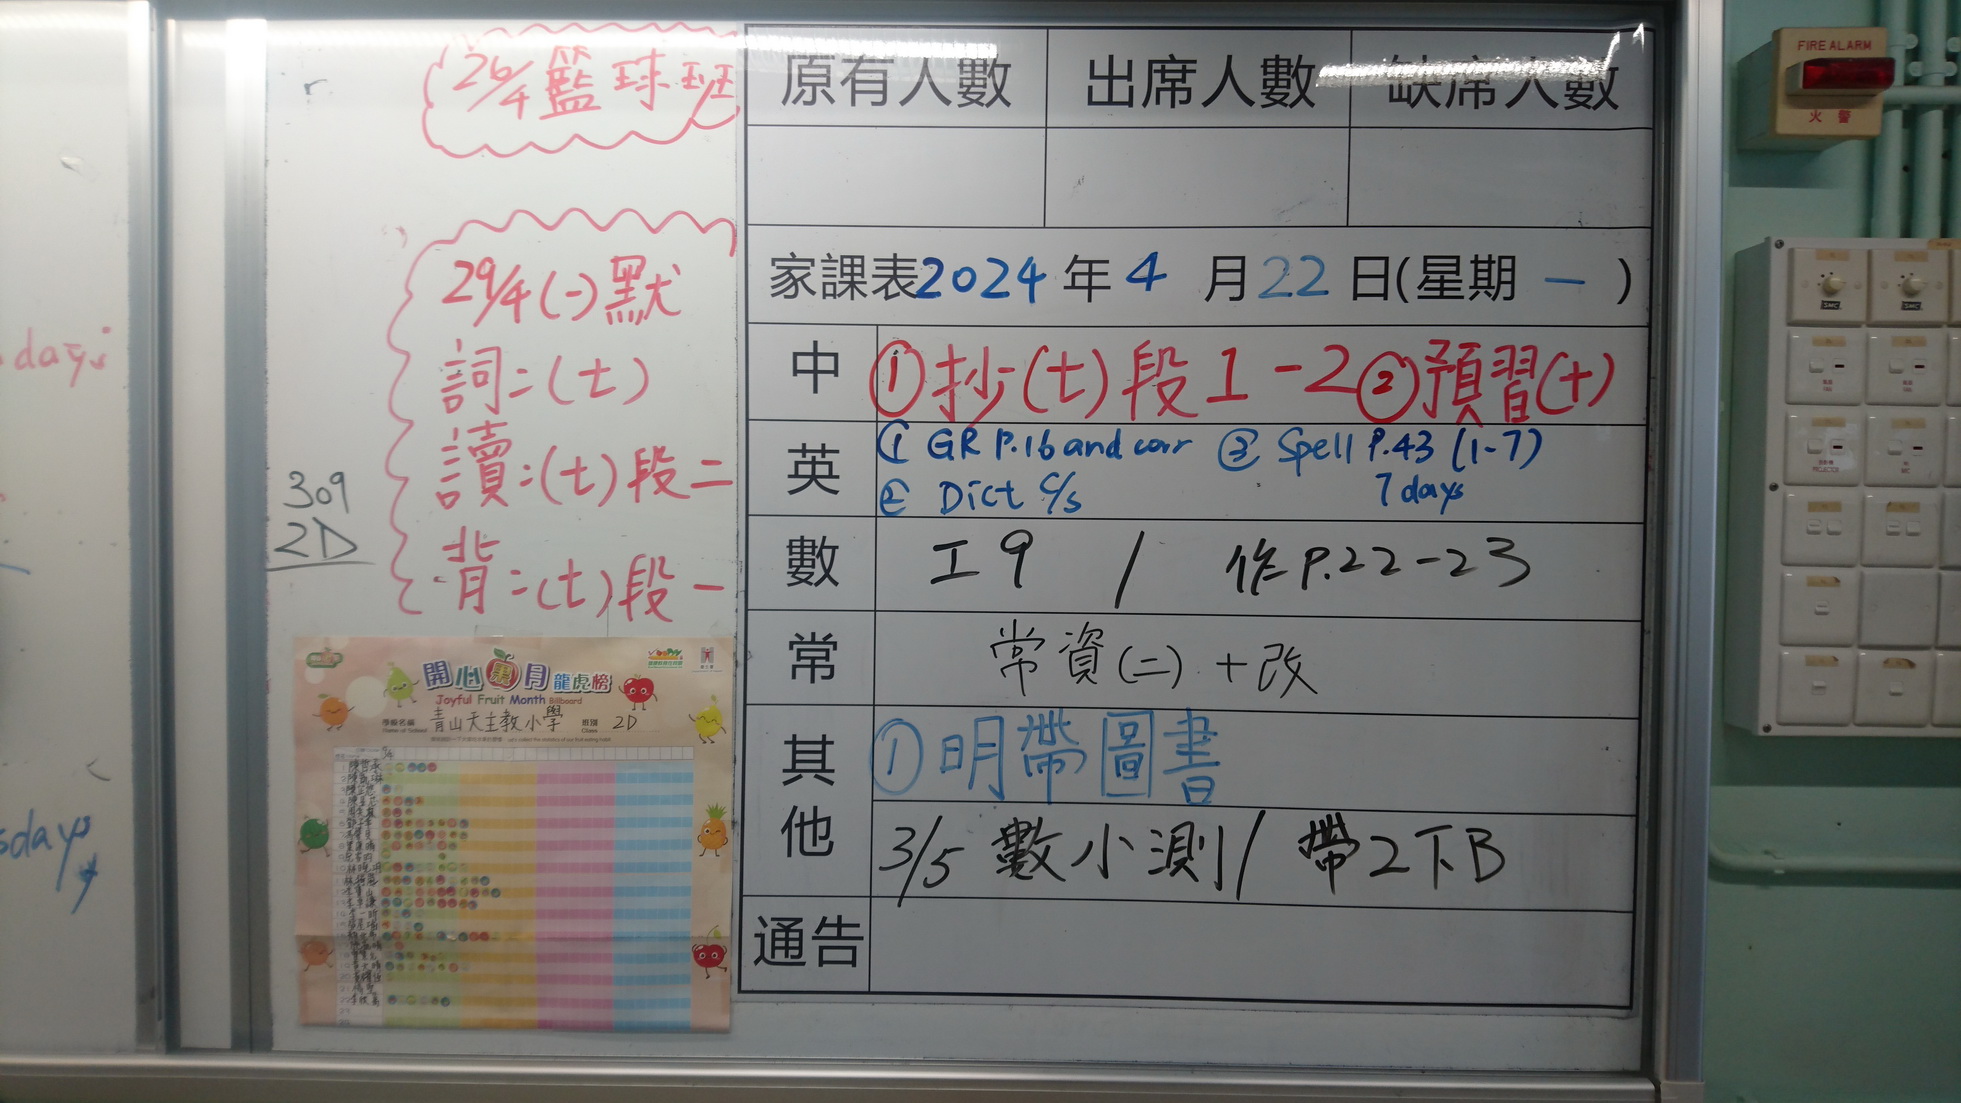 days
sdays
26/4 籃球班
29/4 (一) 默
詞:(七)
讀:(七)段二
背:(七)段一
309
2D
開心果月龍虎榜
Joyful Fruit Month Billboard
學校名稱 青山天主教小學 班別 2D
Name of School Class
原有人數 出席人數 缺席人數
家課表2024年4月22日(星期一)
中 ①抄(七)段1-2 ②預習(十)
英 ① GR P.16 and corr ③ Spell P.43 (1-7)
② Dict c/s 7 days
數 工9 / 作P.22-23
常 常資(二)+改
其他 ①明帶圖書
3/5 數小測/ 帶2下B
通告
FIRE ALARM
火警